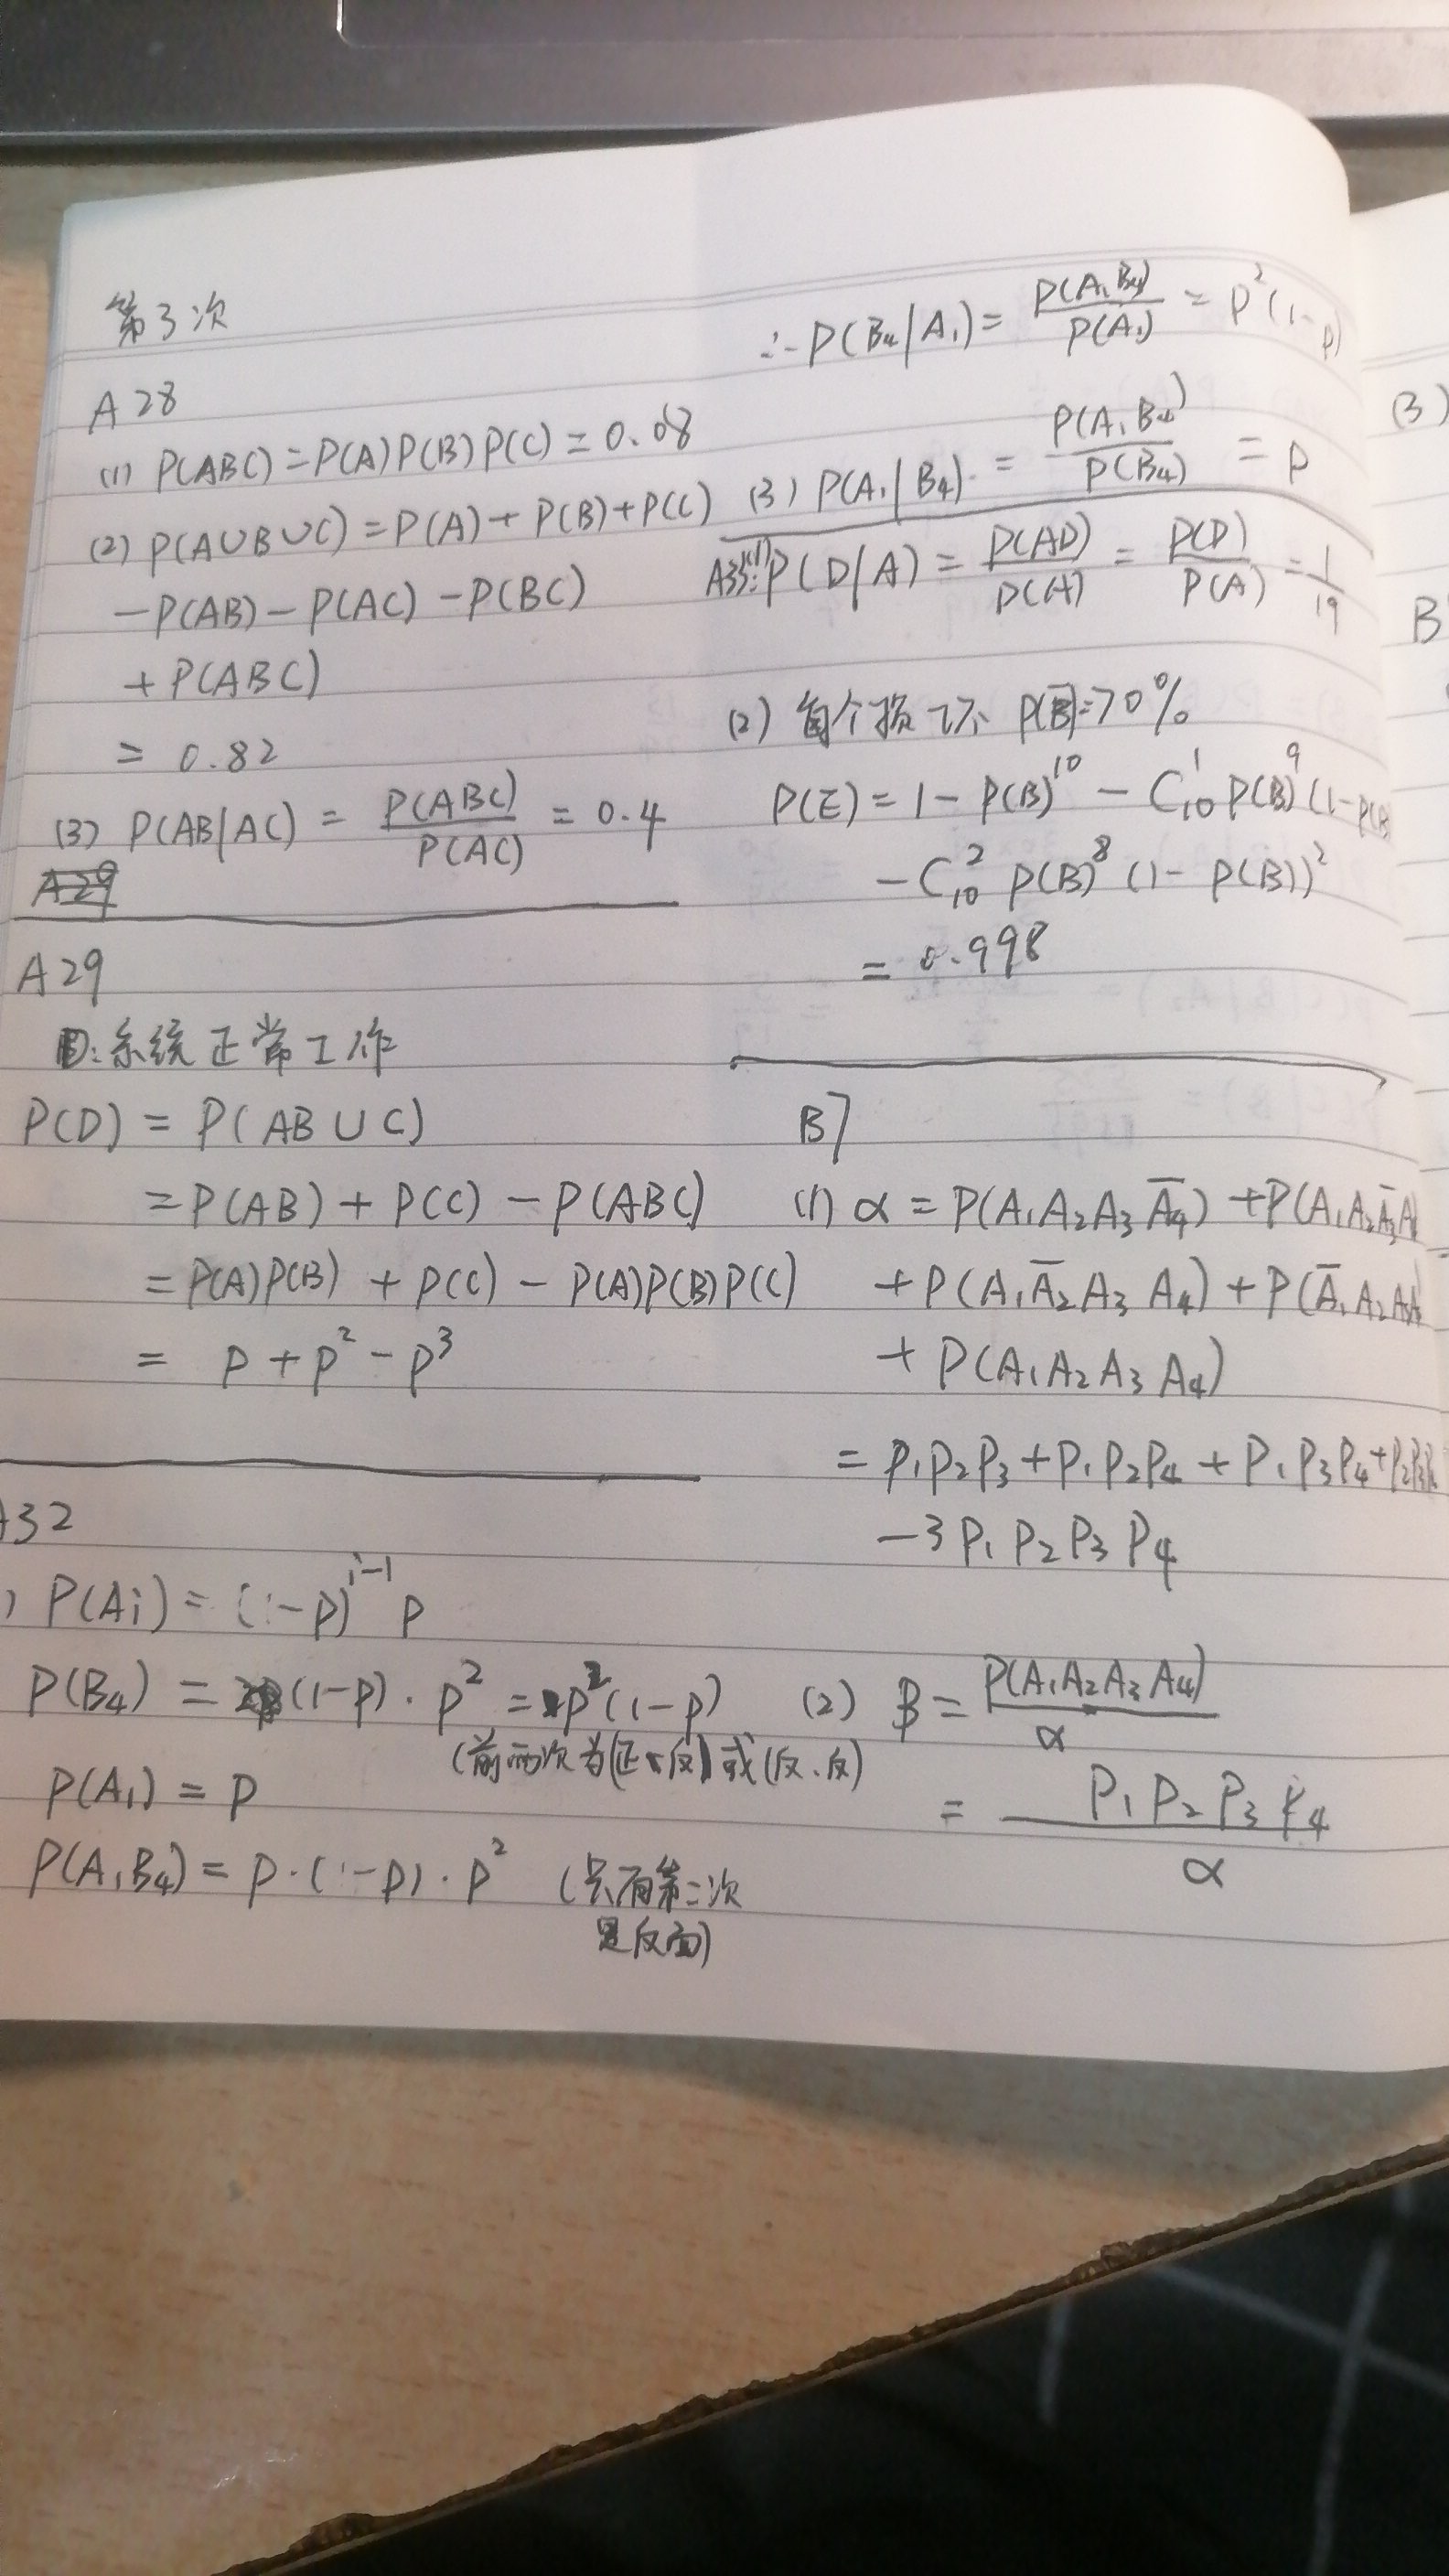 第3次
A28
(1) P(ABC)=P(A)P(B)P(C)=0.08
(2) P(A∪B∪C)=P(A)+P(B)+P(C)
-P(AB)-P(AC)-P(BC)
+P(ABC)
= 0.82
(3) P(AB|AC) = P(ABC)/P(AC) = 0.4
A29
A29
D:系统正常工作
P(D) = P(AB∪C)
=P(AB)+P(C)-P(ABC)
=P(A)P(B)+P(C)-P(A)P(B)P(C)
= p+p²-p³
A32
) P(Ai)=(1-p)^(i-1) p
P(B₄) = (1-p)·p² = p²(1-p)
(前两次为(正、反)或(反、反)
P(A₁) = p
P(A₁B₄) = p·(1-p)·p² (只有第二次
是反面)
∴P(B₄|A₁)= P(A₁B₄)/P(A₁) = p²(1-p)
(3) P(A₁|B₄) = P(A₁B₄)/P(B₄) = p
A35:(1) P(D|A) = P(AD)/P(A) = P(D)/P(A) = 1/19
(2) 每个损坏 P(B)=70%
P(E)=1-P(B)^10 - C₁₀¹ P(B)^9 (1-P(B)
-C₁₀² P(B)^8 (1-P(B))²
= 0.998
B7
(1) α = P(A₁A₂A₃A̅₄)+P(A₁A₂A̅₃A
+P(A₁A̅₂A₃A₄)+P(A̅₁A₂A₃A
+P(A₁A₂A₃A₄)
= P₁P₂P₃+P₁P₂P₄+P₁P₃P₄+P₂P₃P₄
-3P₁P₂P₃P₄
(2) β = P(A₁A₂A₃A₄)/α
= P₁P₂P₃P₄/α
(3)
B